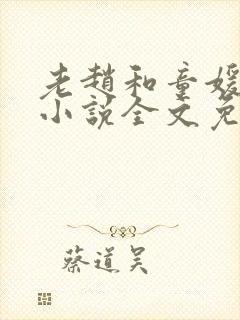 老趙和童媛
小說全文免
蔡道吳